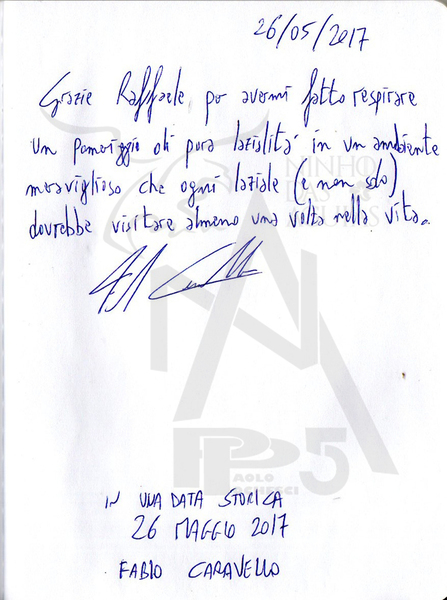 26/05/2017
Grazie Raffaele per avermi fatto respirare
un pomeriggio di pura lazialità in un ambiente
meraviglioso che ogni laziale (e non solo)
dovrebbe visitare almeno una volta nella vita.
NINHO
DAS
PP5
AOLO
IN UNA DATA STORICA
26 MAGGIO 2017
FABIO CARAVELLO